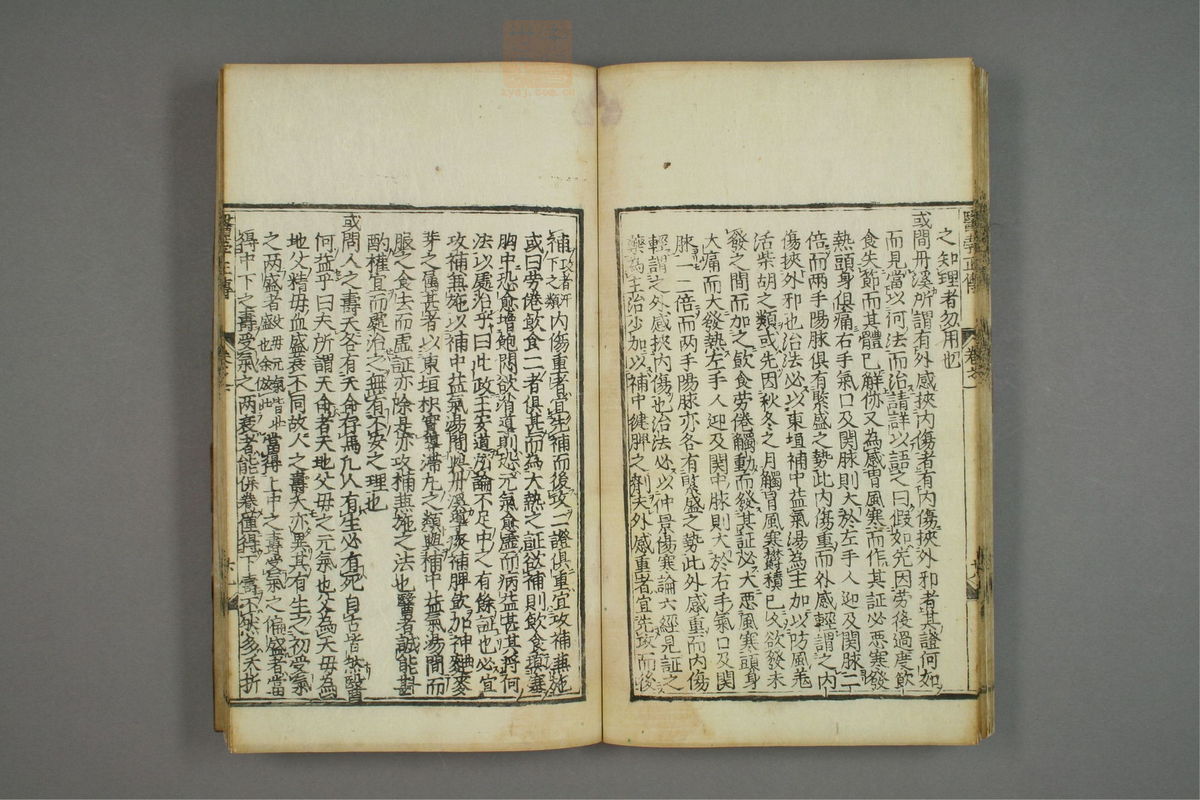 之知理者勿用也
或問丹溪所謂有外感挾内傷者有内傷挾外邪者其證何如
而見當以何法而治請詳以語之曰假如先因勞後過度飲
食失節而其體已解㑊又為感冒風寒而作其証必惡寒發
熱頭身俱痛右手氣口及関脉則大於左手人迎及関脉一二
倍而兩手陽脉俱有緊盛之勢此内傷重而外感輕謂之内
傷挾外邪也治法必以東垣補中益氣湯為主加以防風羌
活柴胡之類或先因秋冬之月觸冒風寒欝積已久欲發未
發之間而加之飲食勞倦觸動而發其証必大惡風寒頭身
大痛而大發熱左手人迎及関中脉則大於右手氣口及関
脉一二倍而兩手陽脉亦各有緊盛之勢此外感重而内傷
輕謂之外感挾内傷也治法必以仲景傷寒論六經見証之
藥為主治少加以補中健脾之劑夫外感重者宜先攻而後
補攻者汗下之類内傷重者宜先補而後攻二證俱重宜攻補兼施
或曰勞倦飲食二者俱甚而為大熱之証欲補則飲食塡塞
胸中恐愈增飽悶欲消導則恐元氣愈虛而病益甚其将何
法以處治乎曰此政王安道所論不足中之有餘証也必宜
攻補兼施以補中益氣湯間與丹溪導痰補脾飲加神麯麥
芽之屬甚者以東垣枳實導滯丸之類與補中益氣湯間而
服之食去而虛証亦除是亦攻補兼施之法也醫者誠能斟
酌權宜而處治之無有不安之理也
或問人之壽夭各有天命存焉凡人有生必有死自古皆然醫
何益乎曰夫所謂天命者天地父母之元氣也父為天母為
地父精母血盛衰不同故人之壽夭亦異其有生之初受氣
之两盛者父母元氣皆壯盛也余倣此當得上中之壽受氣之偏盛者當
得中下之壽受氣之两衰者能保養僅得下壽不然多夭折